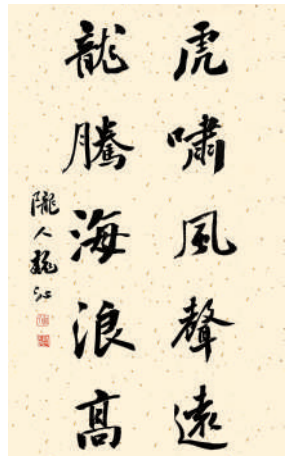 虎嘯風聲遠
龍騰海浪高
隴人魏